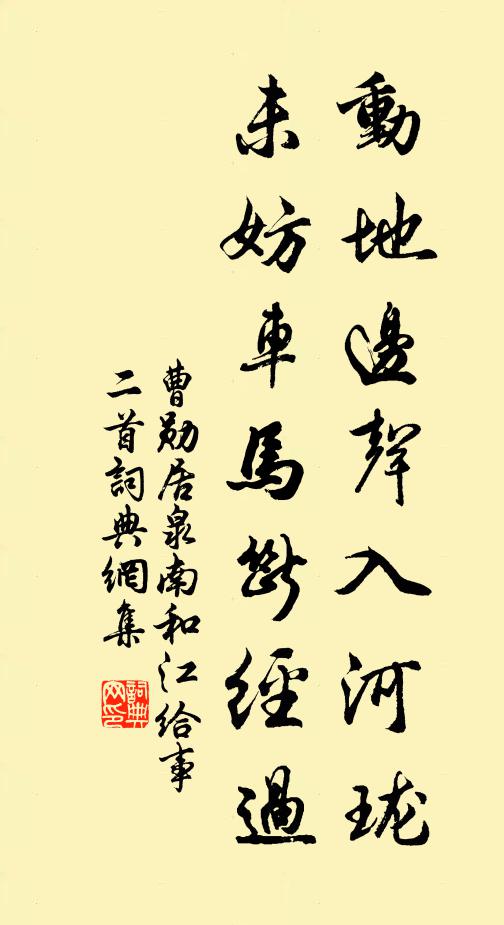 動地邊聲入河珑
未妨車馬斷經過
曹勛居泉南和江給事
二首詞典網集
詞典網印